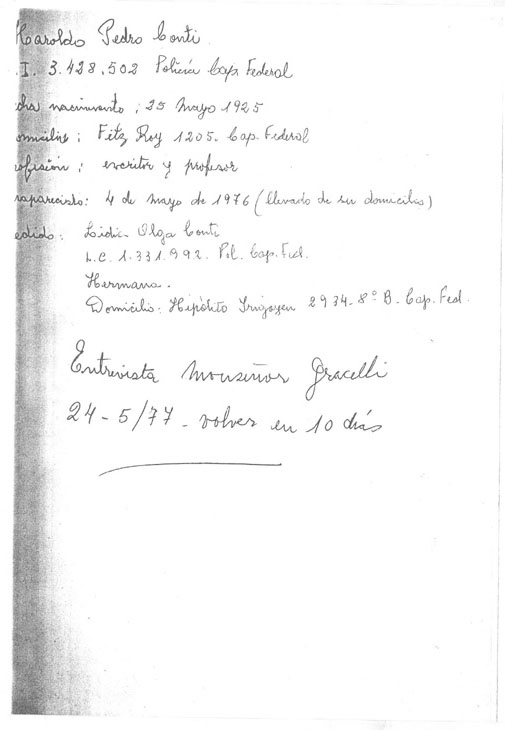 Haroldo Pedro Conti
.I. 3.428.502 Policía Cap. Federal
cha nacimiento: 25 Mayo 1925
omicilio: Fitz Roy 1205. Cap. Federal
ofesión: escritor y profesor
saparecido: 4 de mayo de 1976 (llevado de su domicilio)
edido: Lidia Olga Conti
L.C. 1.331.992. Pol. Cap. Fed.
Hermana.
Domicilio: Hipólito Irigoyen 2934-8º B. Cap. Fed.
Entrevista Monseñor Gracelli
24-5/77 - volver en 10 días